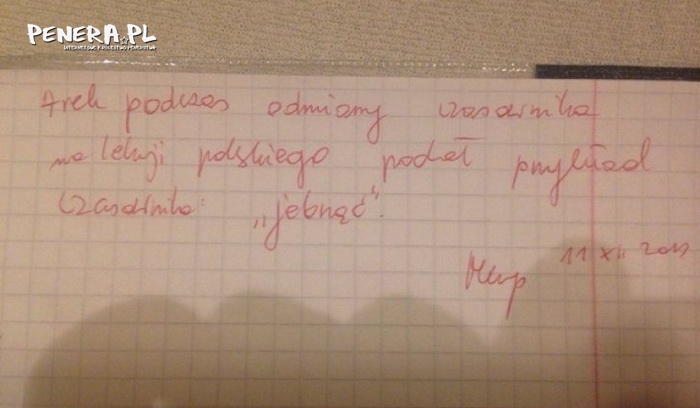 PENERA.PL
INTERNETOWE KRÓLESTWO PENERSTWA
Arek podczas odmiany czasownika
na lekcji polskiego podał przykład
czasownika: „jebnąć".
11 XII 2013